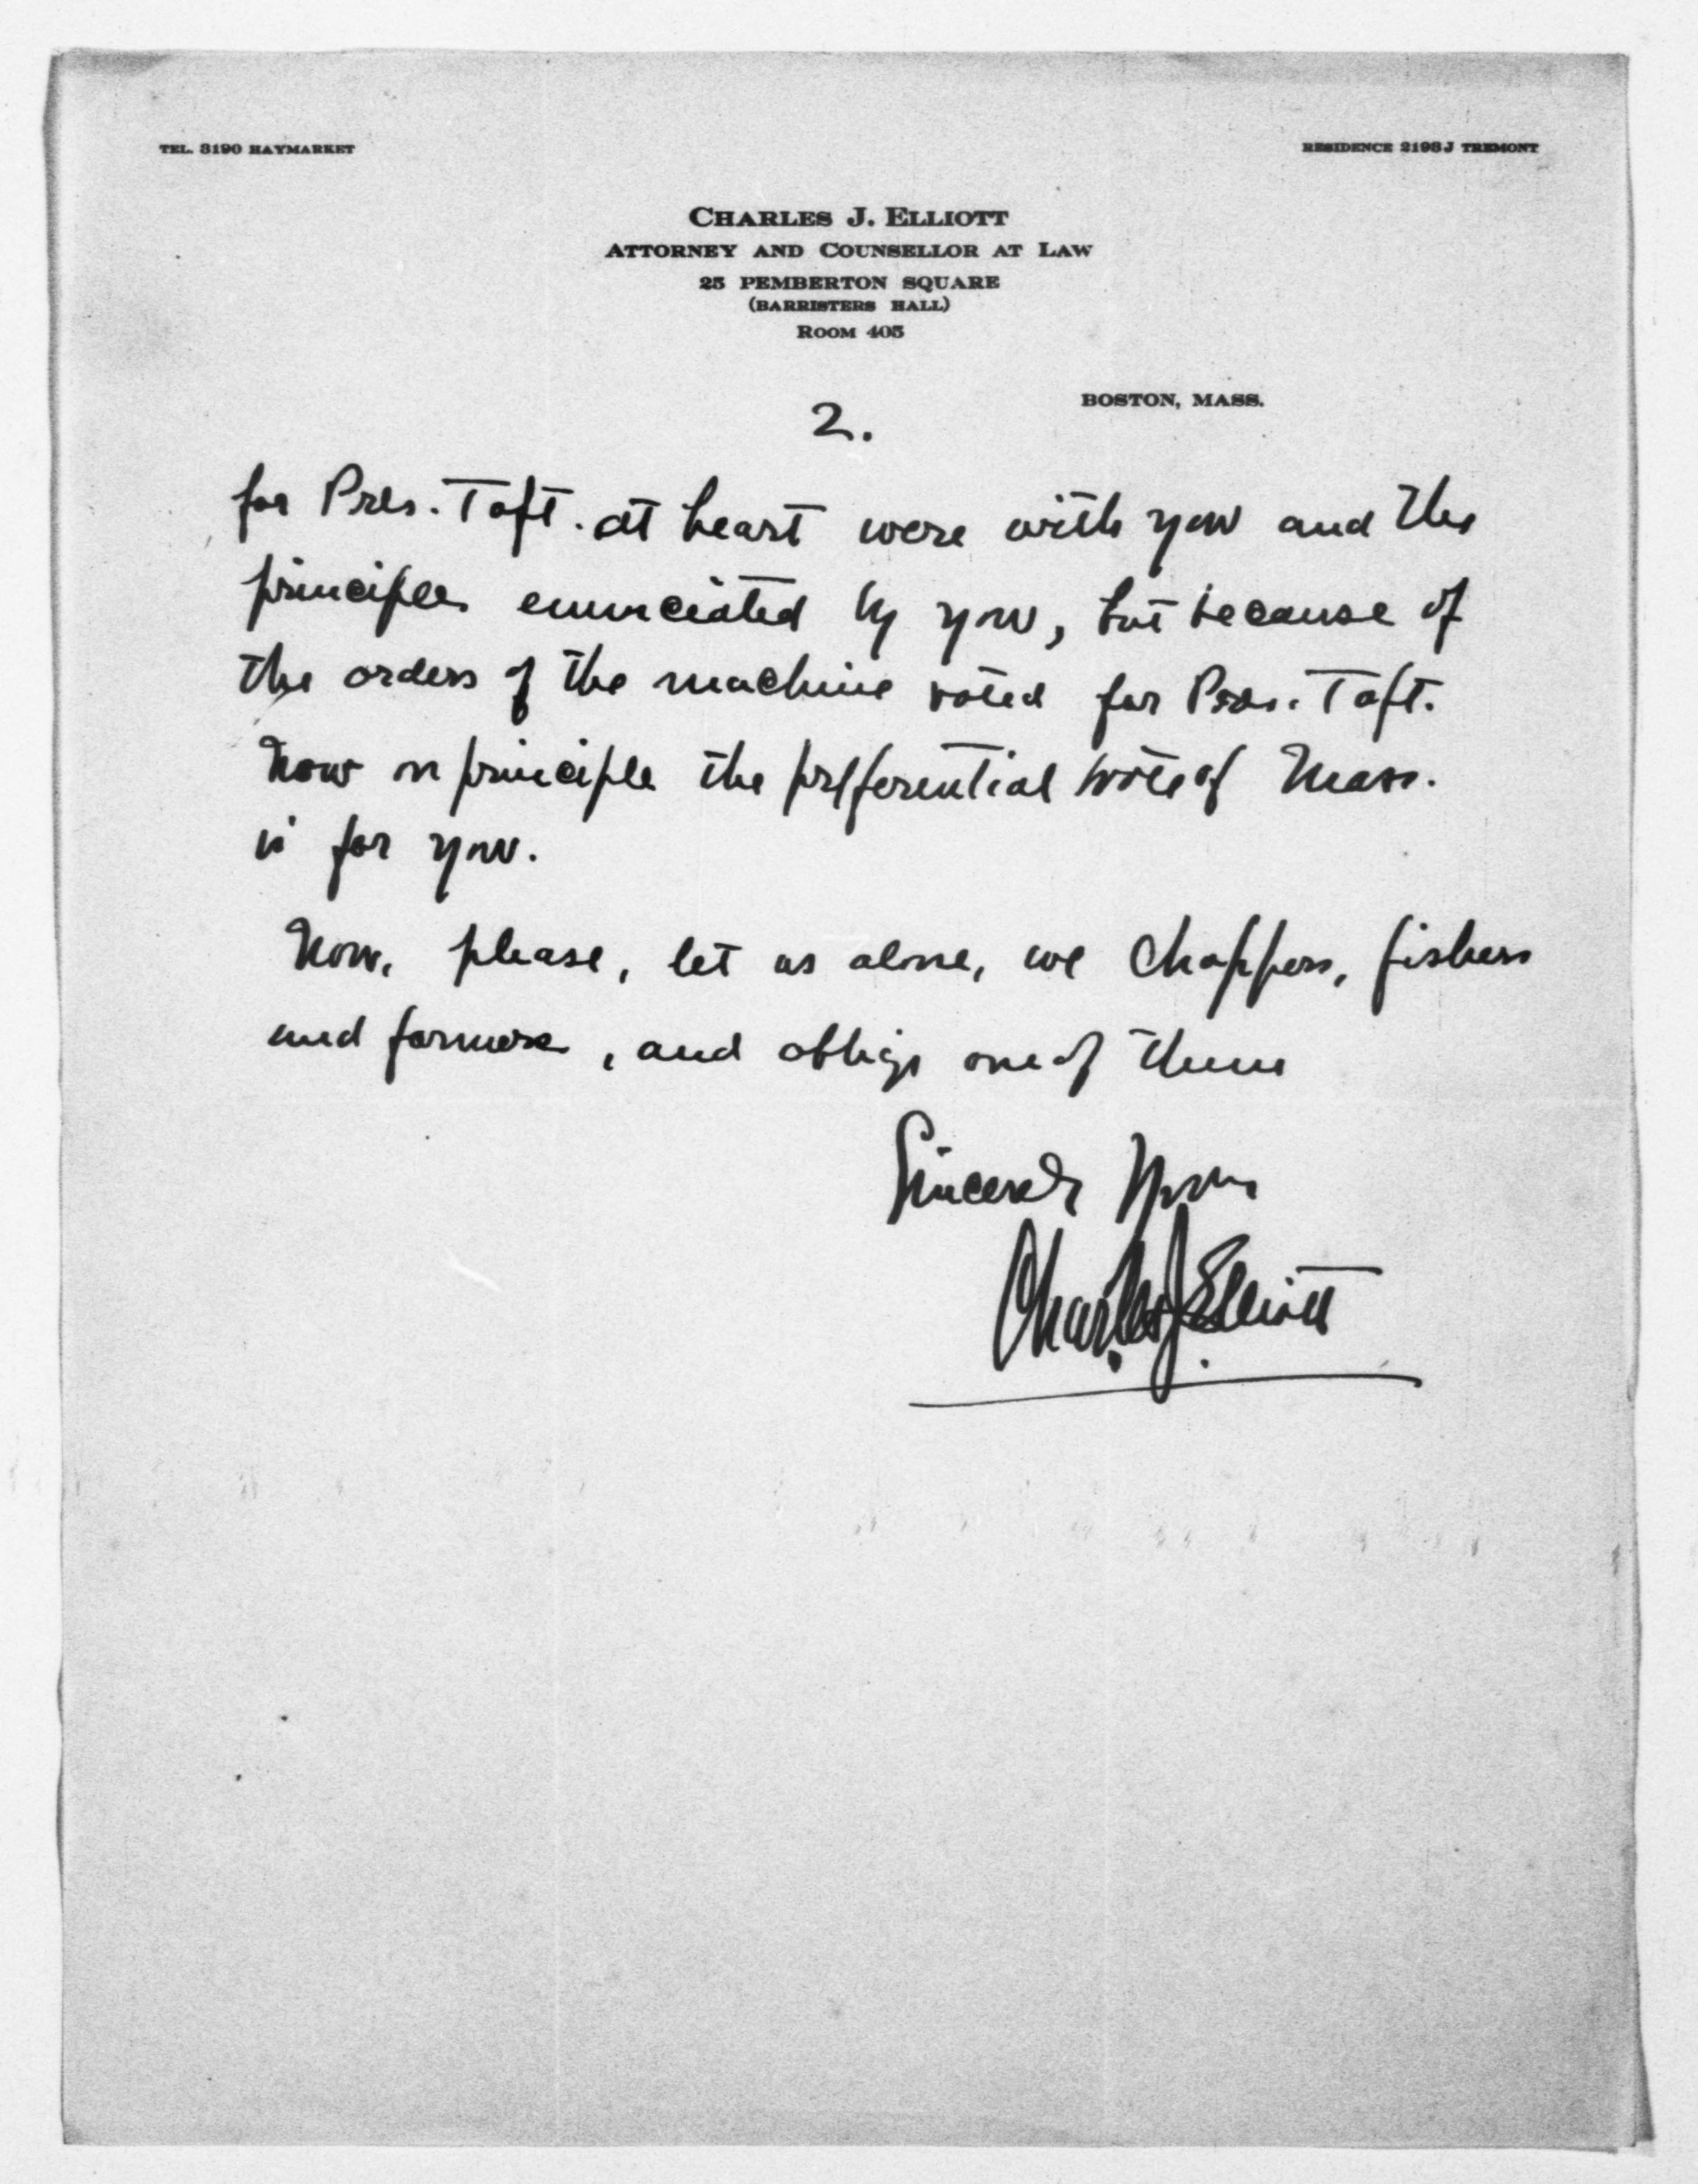 TEL. 3190 HAYMARKET
RESIDENCE 2193J TREMONT
CHARLES J. ELLIOTT
ATTORNEY AND COUNSELLOR AT LAW
25 PEMBERTON SQUARE
(BARRISTERS HALL)
ROOM 405
BOSTON, MASS.
2.
for Pres. Taft. at heart were with you and the
principles enunciated by you, but because of
the orders of the machine voted for Pres. Taft.
Now on principle the preferential vote of Mass.
is for you.
Now, please, let us alone, we choppers, fishers
and farmers, and oblige one of them
Sincerely Yours
Charles J. Elliott